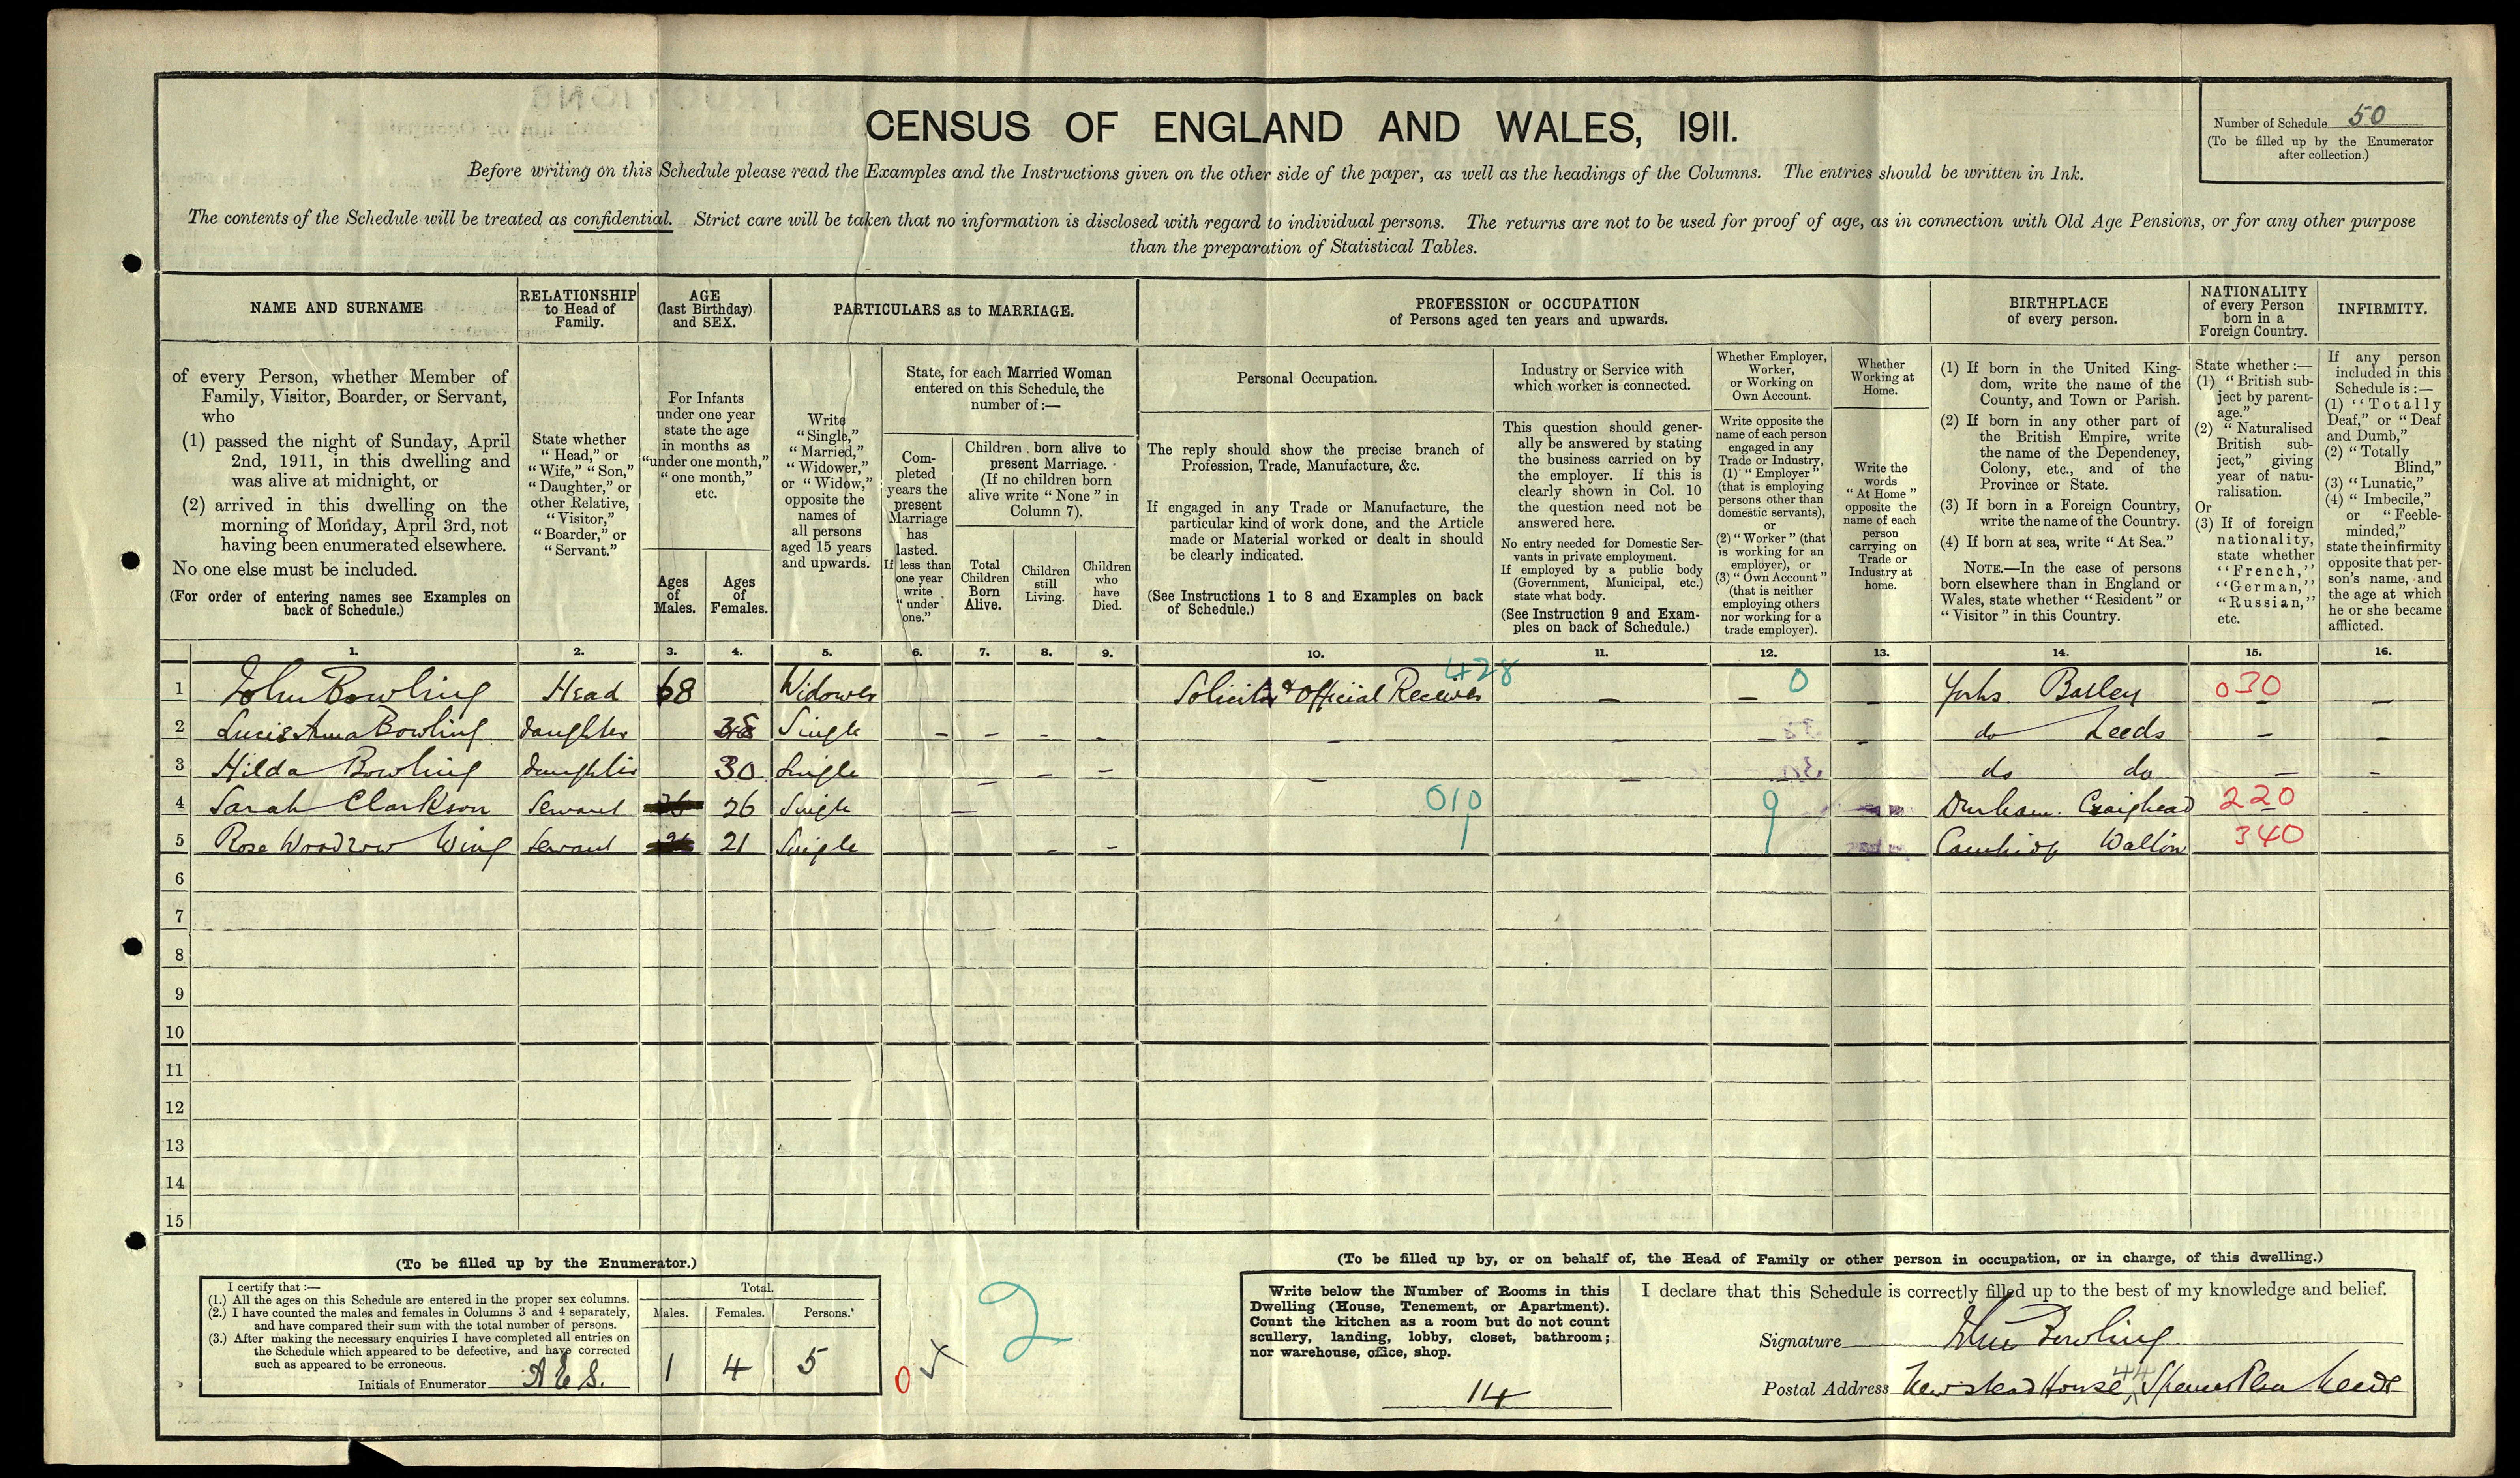 CENSUS OF ENGLAND AND WALES, 1911.
Number of Schedule 50
(To be filled up by the Enumerator after collection.)
Before writing on this Schedule please read the Examples and the Instructions given on the other side of the paper, as well as the headings of the Columns. The entries should be written in Ink.
The contents of the Schedule will be treated as confidential. Strict care will be taken that no information is disclosed with regard to individual persons. The returns are not to be used for proof of age, as in connection with Old Age Pensions, or for any other purpose
than the preparation of Statistical Tables.
NAME AND SURNAME
of every Person, whether Member of
Family, Visitor, Boarder, or Servant,
who
(1) passed the night of Sunday, April
2nd, 1911, in this dwelling and
was alive at midnight, or
(2) arrived in this dwelling on the
morning of Monday, April 3rd, not
having been enumerated elsewhere.
No one else must be included.
(For order of entering names see Examples on
back of Schedule.)
RELATIONSHIP
to Head of
Family.
State whether
"Head," or
"Wife," "Son,"
"Daughter," or
other Relative,
"Visitor,"
"Boarder," or
"Servant."
AGE
(last Birthday)
and SEX.
For Infants
under one year
state the age
in months as
"under one month,"
"one month,"
etc.
Ages
of
Males.
Ages
of
Females.
PARTICULARS as to MARRIAGE.
Write
"Single,"
"Married,"
"Widower,"
or "Widow,"
opposite the
names of
all persons
aged 15 years
and upwards.
State, for each Married Woman
entered on this Schedule, the
number of:—
Com-
pleted
years the
present
Marriage
has
lasted.
If less than
one year
write
"under
one."
Children born alive to
present Marriage.
(If no children born
alive write "None" in
Column 7).
Total
Children
Born
Alive.
Children
still
Living.
Children
who
have
Died.
PROFESSION or OCCUPATION
of Persons aged ten years and upwards.
Personal Occupation.
The reply should show the precise branch of
Profession, Trade, Manufacture, &c.
If engaged in any Trade or Manufacture, the
particular kind of work done, and the Article
made or Material worked or dealt in should
be clearly indicated.
(See Instructions 1 to 8 and Examples on back
of Schedule.)
Industry or Service with
which worker is connected.
This question should gener-
ally be answered by stating
the business carried on by
the employer. If this is
clearly shown in Col. 10
the question need not be
answered here.
No entry needed for Domestic Ser-
vants in private employment.
If employed by a public body
(Government, Municipal, etc.)
state what body.
(See Instruction 9 and Exam-
ples on back of Schedule.)
Whether Employer,
Worker,
or Working on
Own Account.
Write opposite the
name of each person
engaged in any
Trade or Industry,
(1) "Employer"
(that is employing
persons other than
domestic servants),
or
(2) "Worker" (that
is working for an
employer), or
(3) "Own Account"
(that is neither
employing others
nor working for a
trade employer).
Whether
Working at
Home.
Write the
words
"At Home"
opposite the
name of each
person
carrying on
Trade or
Industry at
home.
BIRTHPLACE
of every person.
(1) If born in the United King-
dom, write the name of the
County, and Town or Parish.
(2) If born in any other part of
the British Empire, write
the name of the Dependency,
Colony, etc., and of the
Province or State.
(3) If born in a Foreign Country,
write the name of the Country.
(4) If born at sea, write "At Sea."
NOTE.—In the case of persons
born elsewhere than in England or
Wales, state whether "Resident" or
"Visitor" in this Country.
NATIONALITY
of every Person
born in a
Foreign Country.
State whether:—
(1) "British sub-
ject by parent-
age."
(2) "Naturalised
British sub-
ject," giving
year of natu-
ralisation.
Or
(3) If of foreign
nationality,
state whether
"French,"
"German,"
"Russian,"
etc.
INFIRMITY.
If any person
included in this
Schedule is:—
(1) "Totally
Deaf," or "Deaf
and Dumb,"
(2) "Totally
Blind,"
(3) "Lunatic,"
(4) "Imbecile,"
or "Feeble-
minded,"
state the infirmity
opposite that per-
son's name, and
the age at which
he or she became
afflicted.
1. 2. 3. 4. 5. 6. 7. 8. 9. 10. 11. 12. 13. 14. 15. 16.
428
1 John Bowling Head 68 Widower Solicitor & Official Receiver — — 0 — Yorks Batley 030 —
2 Bowling daughter Single — — - - — — — — do Leeds — —
3 Hilda Bowling daughter 30 Single — — — — — do do — -
4 Sarah Clarkson Servant 26 Single — 010 9 Durham. Craighead 220 -
5 Rose Woodrow Wing Servant 21 Single - - 1 9 340
6
7
8
9
10
11
12
13
14
15
(To be filled up by the Enumerator.)
I certify that:—
(1.) All the ages on this Schedule are entered in the proper sex columns.
(2.) I have counted the males and females in Columns 3 and 4 separately,
and have compared their sum with the total number of persons.
(3.) After making the necessary enquiries I have completed all entries on
the Schedule which appeared to be defective, and have corrected
such as appeared to be erroneous.
Initials of Enumerator A E S.
Total.
Males. Females. Persons.
1 4 5
0
2
(To be filled up by, or on behalf of, the Head of Family or other person in occupation, or in charge, of this dwelling.)
Write below the Number of Rooms in this
Dwelling (House, Tenement, or Apartment).
Count the kitchen as a room but do not count
scullery, landing, lobby, closet, bathroom;
nor warehouse, office, shop.
14
I declare that this Schedule is correctly filled up to the best of my knowledge and belief.
Signature John Bowling
Postal Address Newstead House, 44 Spencer Place Leeds